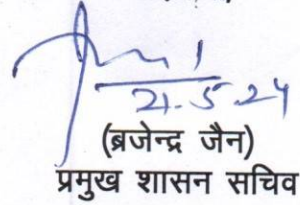 21.5.24
(ब्रजेन्द्र जैन)
प्रमुख शासन सचिव